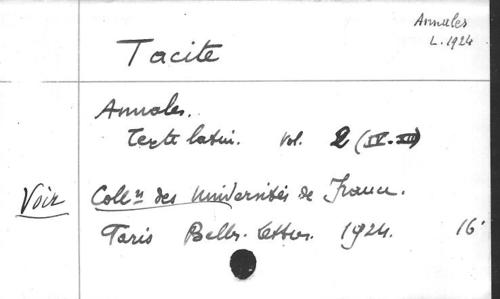 Annales
L. 1924
Tacite
Annales.
Texte latin. Vol. 2 (IV-XII)
Voir Coll<sup>n</sup> des Universités de France.
Paris Belles. Lettres. 1924. 16°